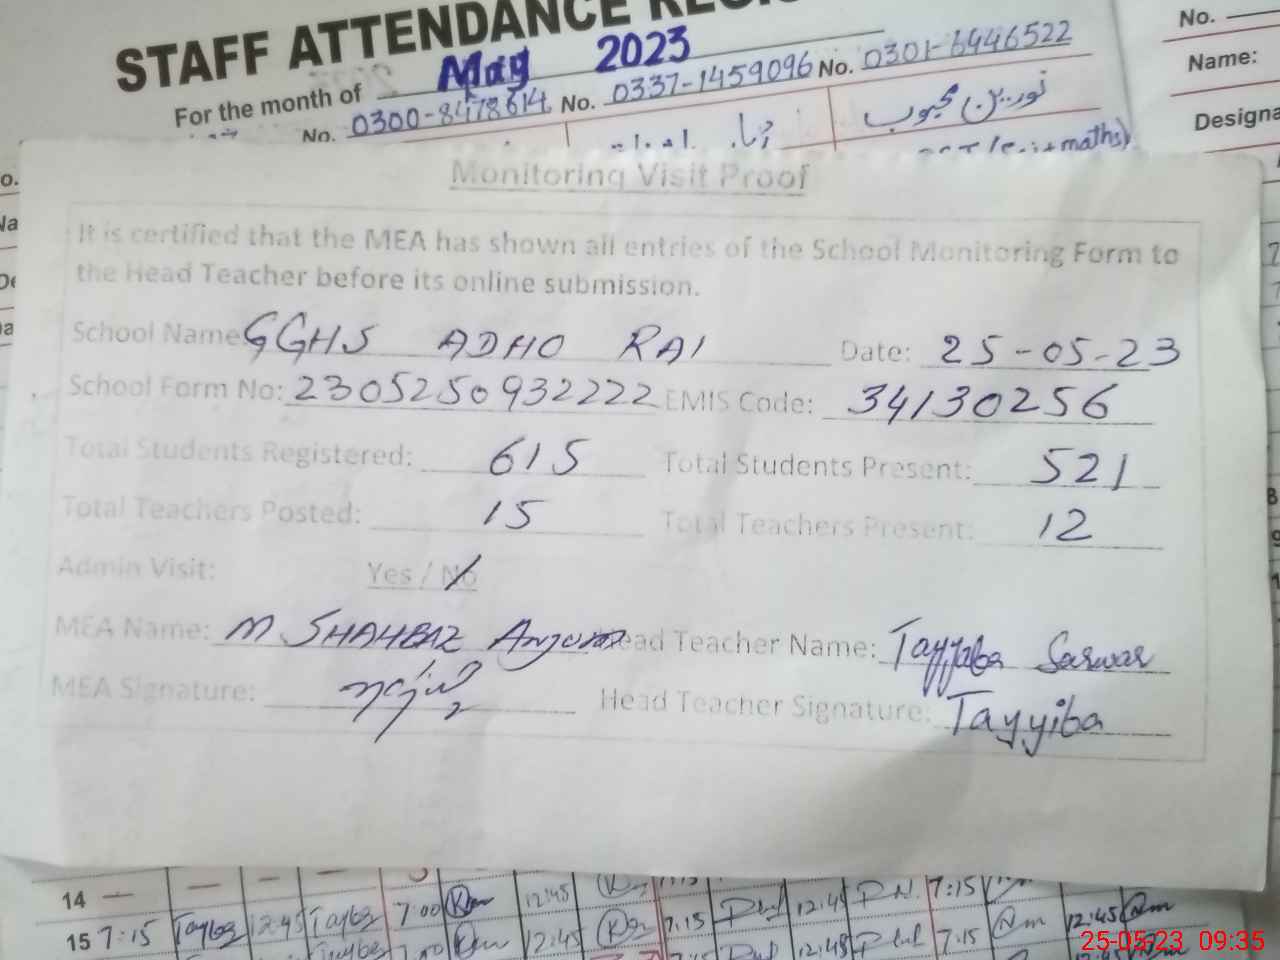 STAFF ATTENDANCE REGIS
For the month of May 2023
No. 0300-8478614 No. 0337-1459096 No. 0301-6446522
نورین محبوب
maths)
No.
Name:
Designa
Monitoring Visit Proof
It is certified that the MEA has shown all entries of the School Monitoring Form to
the Head Teacher before its online submission.
School Name GGHS ADHO RAI Date: 25-05-23
School Form No: 2305250932222 EMIS Code: 34130256
Total Students Registered: 615 Total Students Present: 521
Total Teachers Posted: 15 Total Teachers Present: 12
Admin Visit: Yes / No
MEA Name: M SHAHBAZ Anjum Head Teacher Name: Tayyaba Sarwar
MEA Signature: Head Teacher Signature: Tayyiba
14 — — — — 12:45 7:15 12:45 P.N. 7:15
15 7:15 Tayba 12:45 Tayba 7:00 12:45 7:15 12:45 7:15 12:45
25-05-23 09:35